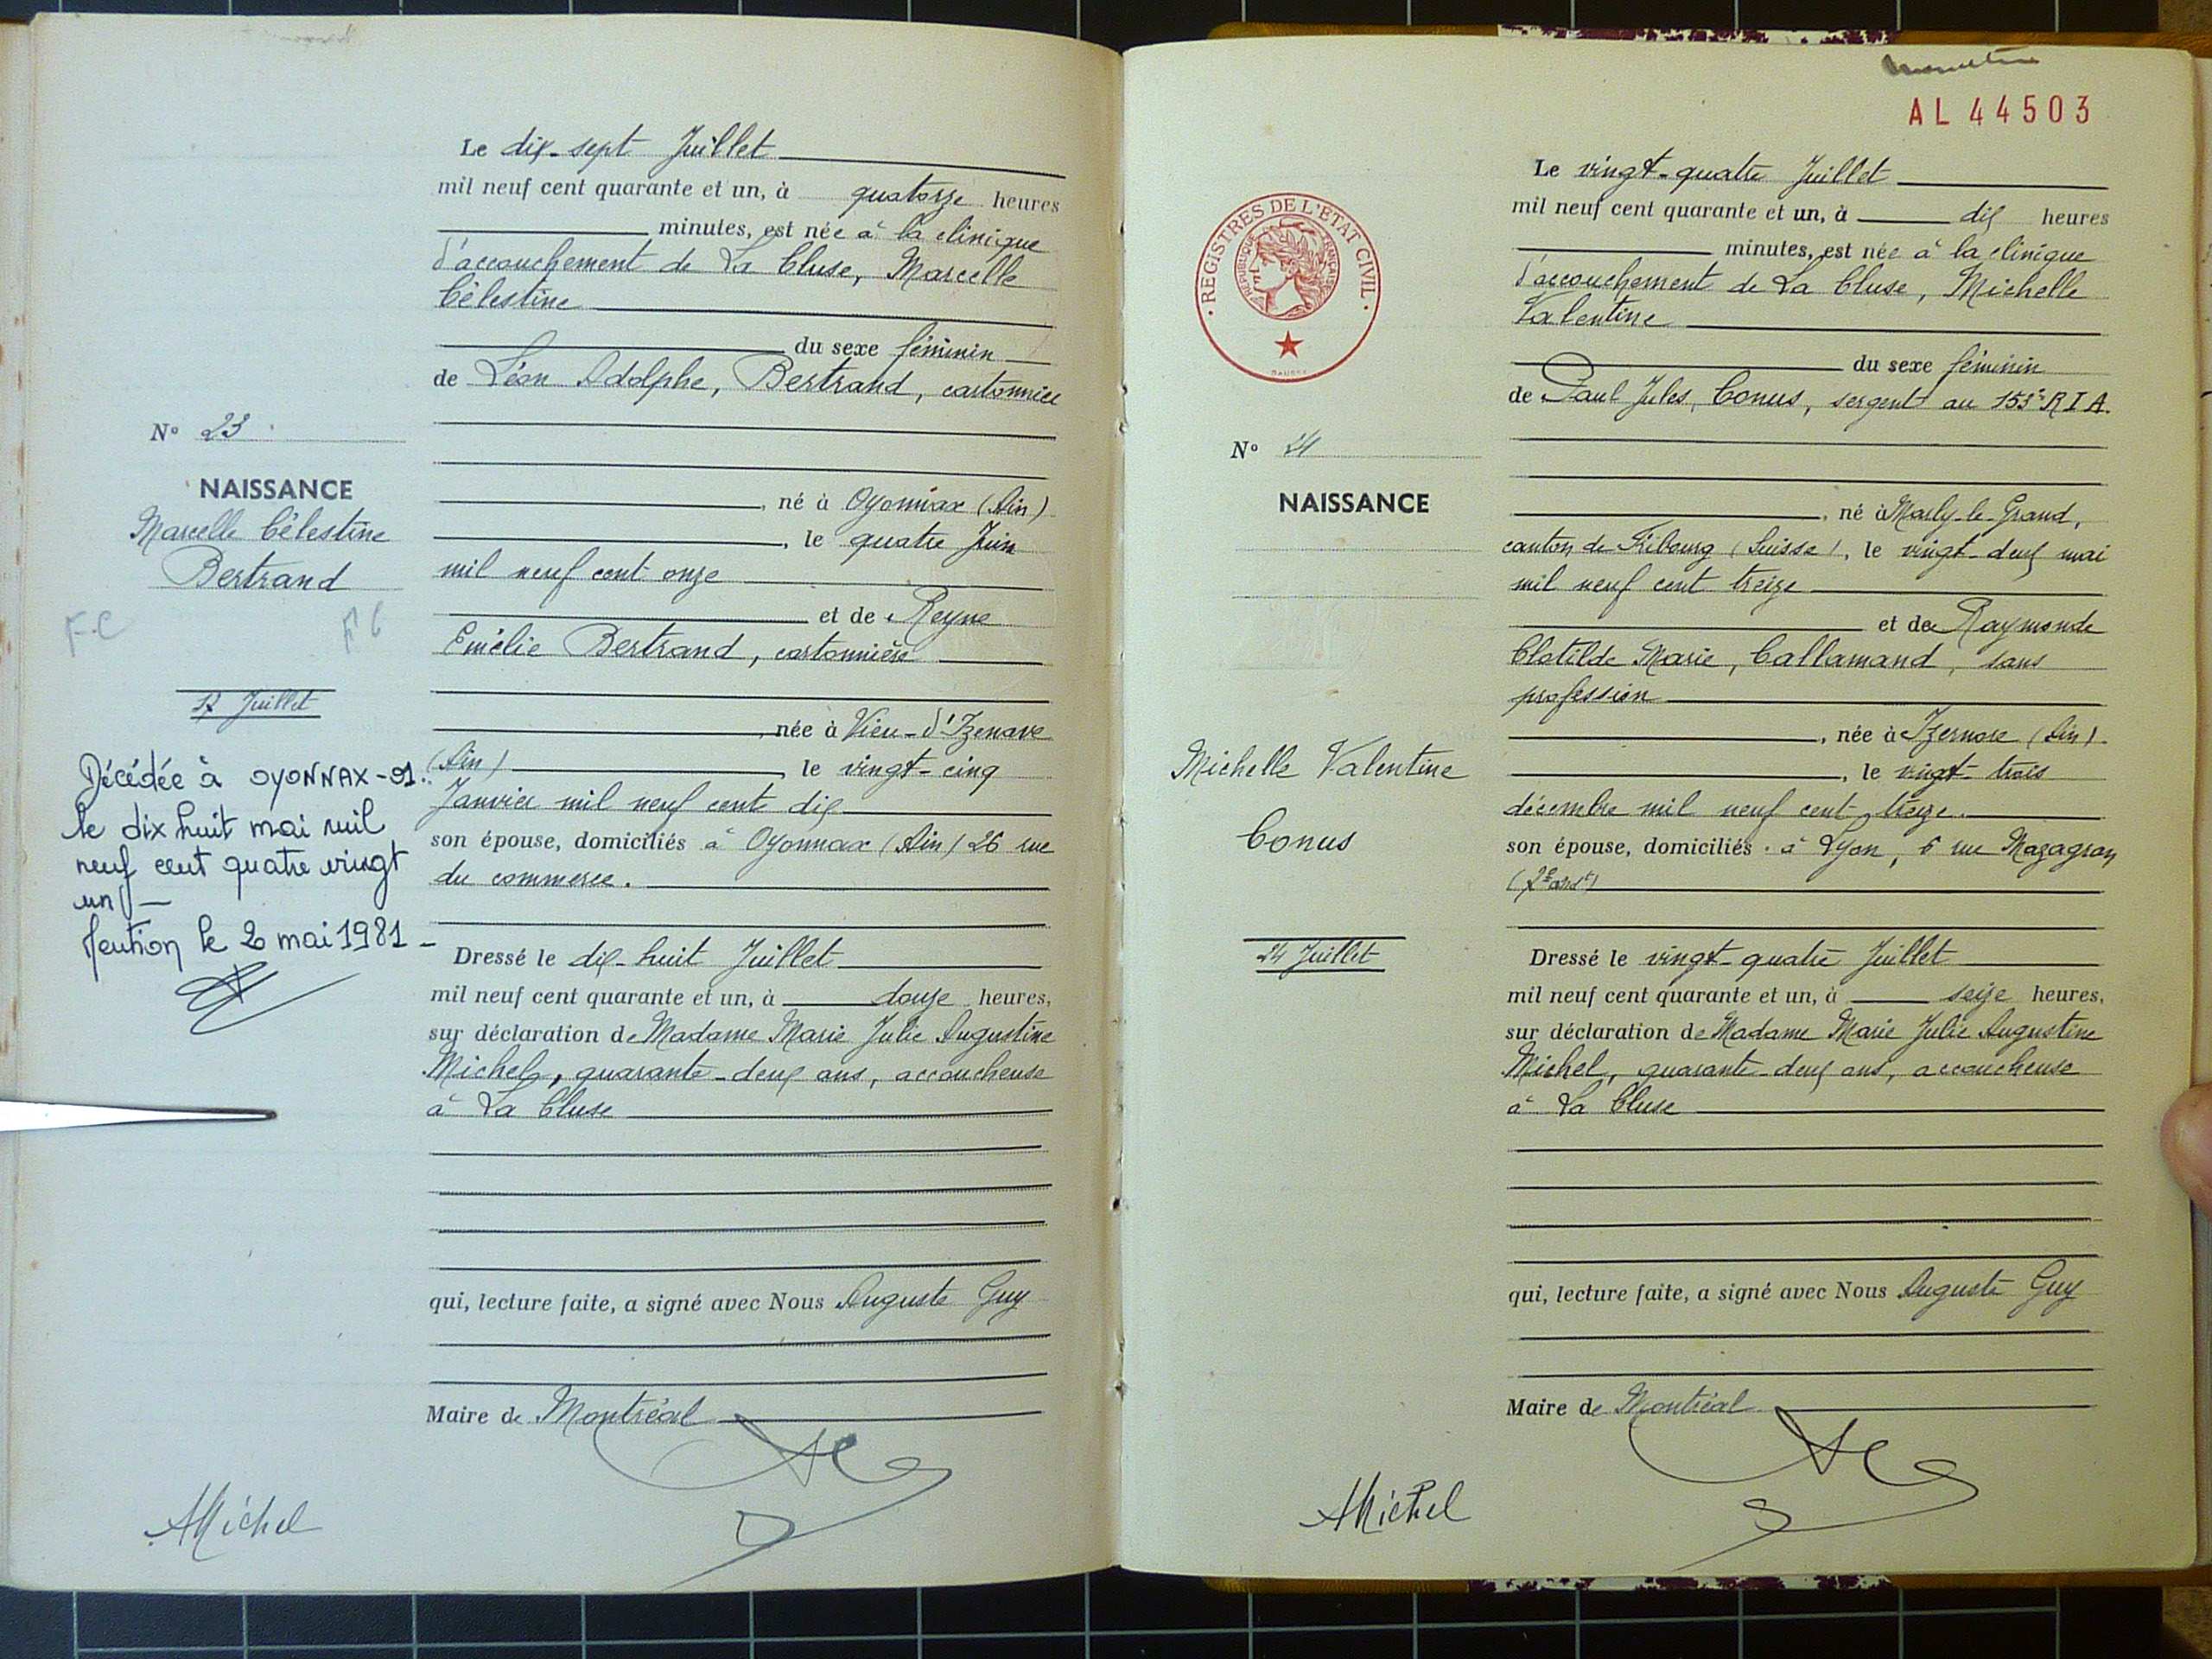 Le dix-sept Juillet
mil neuf cent quarante et un, à quatorze heures
minutes, est née à la clinique
d'accouchement de La Cluse, Marcelle
Célestine
du sexe féminin
de Léon Adolphe, Bertrand, cartonnier
né à Oyonnax (Ain)
, le quatre Juin
mil neuf cent onze
et de Reyne
Emélie Bertrand, cartonnière
, née à Vieu-d'Izenave
(Ain), le vingt-cinq
Janvier mil neuf cent dix
son épouse, domiciliés à Oyonnax (Ain) 26 rue
du commerce.
Dressé le dix-huit Juillet
mil neuf cent quarante et un, à douze heures,
sur déclaration de Madame Marie Julie Augustine
Michel, quarante-deux ans, accoucheuse
à La Cluse
qui, lecture faite, a signé avec Nous Auguste Guy
Maire de Montréal
N° 23
NAISSANCE
Marcelle Célestine
Bertrand
F.C F C
17 Juillet
Décédée à OYONNAX-01.
le dix huit mai mil
neuf cent quatre vingt
un -
Mention le 20 mai 1981 -
AMichel
AL 44503
REGISTRES DE L'ETAT CIVIL
REPUBLIQUE FRANÇAISE
Le vingt-quatre Juillet
mil neuf cent quarante et un, à dix heures
minutes, est née à la clinique
d'accouchement de La Cluse, Michelle
Valentine
du sexe féminin
de Paul Jules, Conus, sergent au 153e R I A.
, né à Marly-le-Grand,
canton de Fribourg (Suisse), le vingt-deux mai
mil neuf cent treize
et de Raymonde
Clotilde Marie, Callamand, sans
profession
, née à Izernore (Ain)
, le vingt-trois
décembre mil neuf cent treize.
son épouse, domiciliés à Lyon, 6 rue Mazagran
(7e arrdt)
Dressé le vingt-quatre Juillet
mil neuf cent quarante et un, à seize heures,
sur déclaration de Madame Marie Julie Augustine
Michel, quarante-deux ans, accoucheuse
à La Cluse
qui, lecture faite, a signé avec Nous Auguste Guy
Maire de Montréal
N° 24
NAISSANCE
Michelle Valentine
Conus
24 Juillet
AMichel